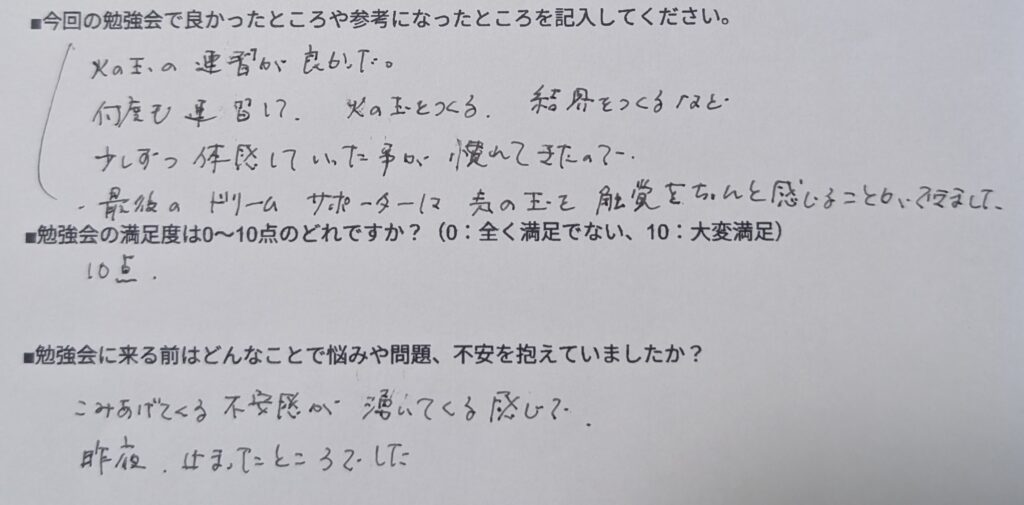 ■今回の勉強会で良かったところや参考になったところを記入してください。
火の玉の連習が良かった。
何度も連習して、火の玉をつくる、結界をつくるなど
少しずつ体感していった事が慣れてきたので、
・最後のドリームサポーターは の玉を触覚をちゃんと感じることができました、
■勉強会の満足度は0～10点のどれですか？（0：全く満足でない、10：大変満足）
10点.
■勉強会に来る前はどんなことで悩みや問題、不安を抱えていましたか？
こみあげてくる不安感が湧いてくる感じで、
昨夜、止まったところでした